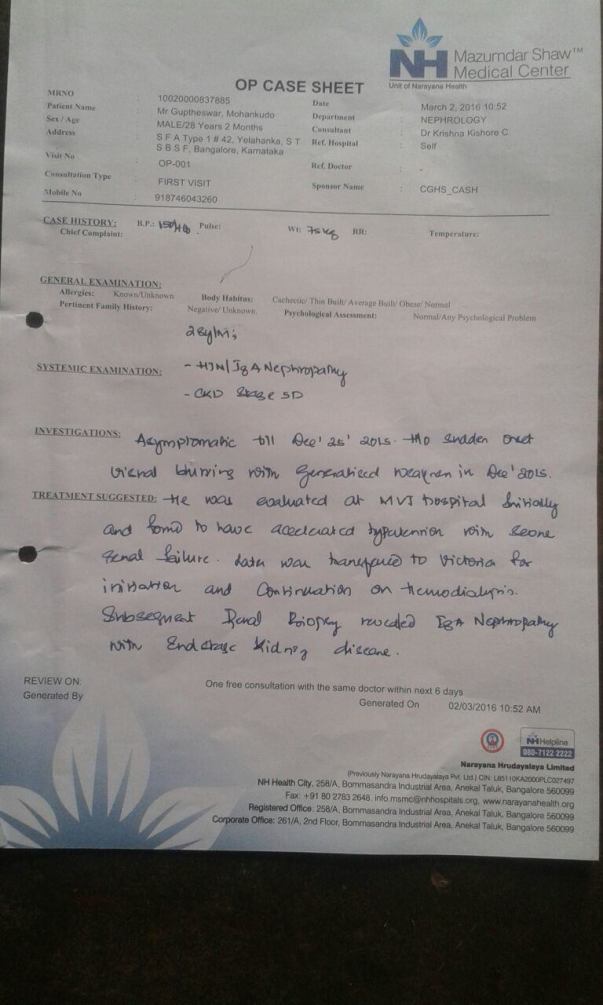 NH Mazumdar Shaw™
Medical Center
Unit of Narayana Health
OP CASE SHEET
MRNO : 10020000837885
Date : March 2, 2016 10:52
Patient Name : Mr Guptheswar, Mohankudo
Department : NEPHROLOGY
Sex / Age : MALE/28 Years 2 Months
Consultant : Dr Krishna Kishore C
Address : S F A Type 1 # 42, Yelahanka, S T
S B S F, Bangalore, Karnataka
Ref. Hospital : Self
Visit No : OP-001
Ref. Doctor : -
Consultation Type : FIRST VISIT
Sponsor Name : CGHS_CASH
Mobile No : 918746043260
CASE HISTORY: B.P.: Pulse: Wt: 75 kg RR: Temperature:
Chief Complaint:
GENERAL EXAMINATION:
Allergies: Known/Unknown Body Habitus: Cachectic/ Thin Built/ Average Built/ Obese/ Normal
Pertinent Family History: Negative/ Unknown. Psychological Assessment: Normal/Any Psychological Problem
28y/m;
SYSTEMIC EXAMINATION: - HTN/IgA Nephropathy
- CKD Stage 5D
INVESTIGATIONS: Asymptomatic till Dec' 25' 2015. H/o sudden onset
visual blurring with generalised weakness in Dec' 2015.
TREATMENT SUGGESTED: He was evaluated at MVJ Hospital initially
and found to have accelerated hypertension with severe
renal failure. Later was transferred to Victoria for
initiation and continuation on Hemodialysis.
Subsequent Renal Biopsy revealed IgA Nephropathy
with End stage Kidney disease.
REVIEW ON: One free consultation with the same doctor within next 6 days
Generated By Generated On 02/03/2016 10:52 AM
NH Helpline
080-7122 2222
Narayana Hrudayalaya Limited
(Previously Narayana Hrudayalaya Pvt. Ltd.) CIN: L85110KA2000PLC027497
NH Health City, 258/A, Bommasandra Industrial Area, Anekal Taluk, Bangalore 560099
Fax: +91 80 2783 2648. info.msmc@nhhospitals.org, www.narayanahealth.org
Registered Office: 258/A, Bommasandra Industrial Area, Anekal Taluk, Bangalore 560099
Corporate Office: 261/A, 2nd Floor, Bommasandra Industrial Area, Anekal Taluk, Bangalore 560099